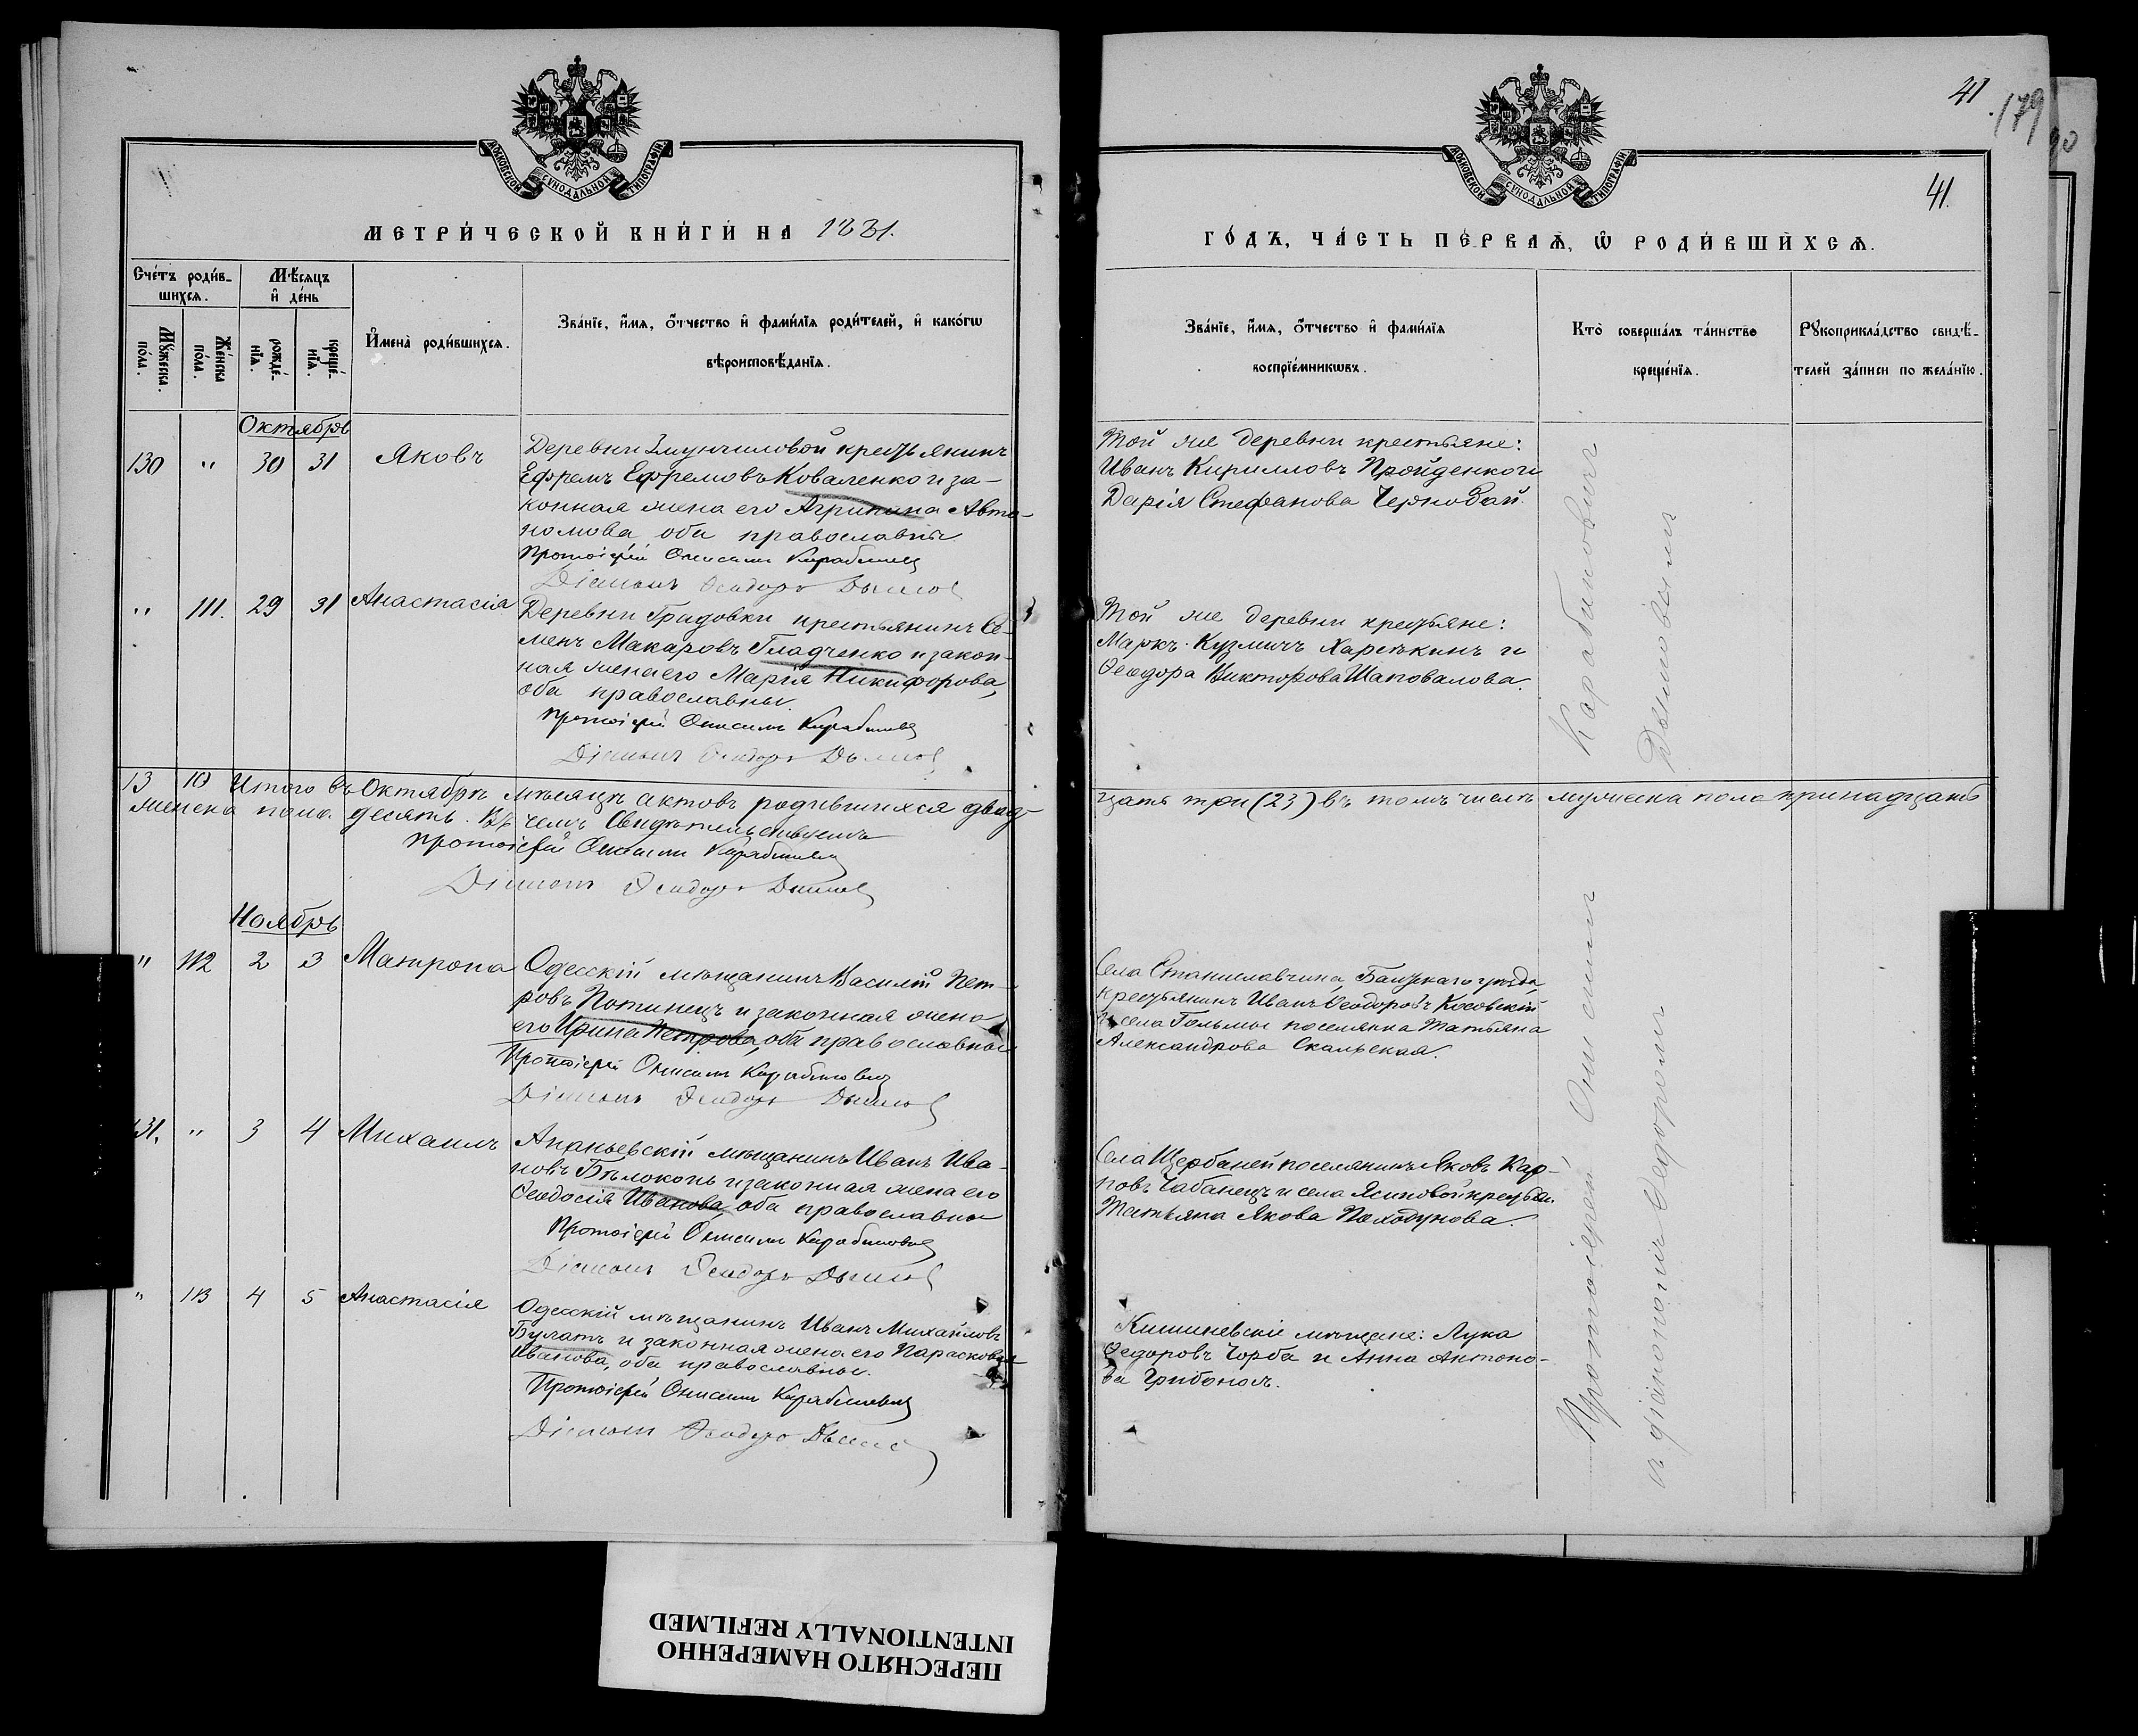 МОСКОВСКОЙ СУНОДАЛЬНОЙ ТИПОГРАФІИ.
МЕТРИ́ЧЕСКОЙ КНИ́ГИ НА 1881.
Сче́тъ роди́в-
шихсѧ.
Мѣ́сѧцъ
и҆ де́нь
Мꙋ́жеска
по́ла.
Же́нска
по́ла.
рожде́-
нїѧ.
креще́-
нїѧ.
И҆мена̀ роди́вшихсѧ.
Зва́нїе, и҆́мѧ, ѻ҆́тчество и҆ фами́лїѧ роди́телей, и҆ како́гѡ
вѣроисповѣ́данїѧ.
Октябрь
130 " 30 31 Яковъ
Деревни крестьянинъ
Ефремъ Ефремовъ Коваленко и за-
конная жена его Агрипина Авто-
номова, оба православны.
Протоіерей Онисимъ Карабиновичъ
Діаконъ Ѳеодоръ Дымовъ
" 111. 29 31 Анастасія
Деревни Градовки крестьянинъ Се-
менъ Макаровъ Гладченко и закон-
ная жена его Марія Никифорова,
оба православны.
Протоіерей Онисимъ Карабиновичъ
Діаконъ Ѳеодоръ Дымовъ
13 10 Итого въ Октябрѣ мѣсяцѣ актовъ родившихся двад-
женска пола десять. Въ чемъ Свидѣтельствуемъ
Протоіерей Онисимъ Карабиновичъ
Діаконъ Ѳеодоръ Дымовъ
Ноябрь
" 112 2 3 Матрона
Одесскій мѣщанинъ Василій Пет-
ровъ Потинецъ и законная жена
его Ирина Петрова, оба православны
Протоіерей Онисимъ Карабиновичъ
Діаконъ Ѳеодоръ Дымовъ
131. " 3 4 Михаилъ
Ананьевскій мѣщанинъ Иванъ Ива-
новъ Бѣлоконь и законная жена его
Ѳеодосія Иванова, оба православны
Протоіерей Онисимъ Карабиновичъ
Діаконъ Ѳеодоръ Дымовъ
" 113 4 5 Анастасія
Одесскій мѣщанинъ Иванъ Михайловъ
Булатъ и законная жена его Параскева
Иванова, оба православны.
Протоіерей Онисимъ Карабиновичъ
Діаконъ Ѳеодоръ Дымовъ
41
179
90
МОСКОВСКОЙ СУНОДАЛЬНОЙ ТИПОГРАФІИ.
41.
ГО́ДЪ, ЧА́СТЬ ПЕ́РВАѦ, Ѡ҆ РОДИ́ВШИХСѦ.
Зва́нїе, и҆́мѧ, ѻ҆́тчество и҆ фами́лїѧ
воспрїе́мникѡвъ.
Кто̀ соверша́лъ та́инство
креще́нїѧ.
Рꙋкоприкла́дство свидѣ́-
телей за́писи по жела́нїю.
Той же деревни крестьяне:
Иванъ Кирилловъ Пройденко и
Дарія Стефанова Чернобай.
Той же деревни крестьяне:
Маркъ Кузмичъ Харечкинъ и
Ѳеодора Викторова Шаповалова.
цать три (23) въ томъ числѣ мужеска пола тринадцать
Села Станиславчина, Балтскаго уѣзда,
крестьянинъ Иванъ Ѳеодоровъ Косовскій
и села Гольмы поселянка Татьяна
Александрова Скальская.
Села Щербаней поселянинъ Яковъ Кар-
повъ Чабанецъ и села Ясиновой крестьян.
Татьяна Якова Походунова.
Кишиневскіе мѣщане: Лука
Ѳедоровъ Чорба и Анна Антоно-
ва Грибоносъ.
Протоіерей Онисимъ Карабиновичъ
съ діакономъ Ѳеодоромъ Дымовымъ
ПЕРЕСНЯТО НАМЕРЕННО
INTENTIONALLY REFILMED